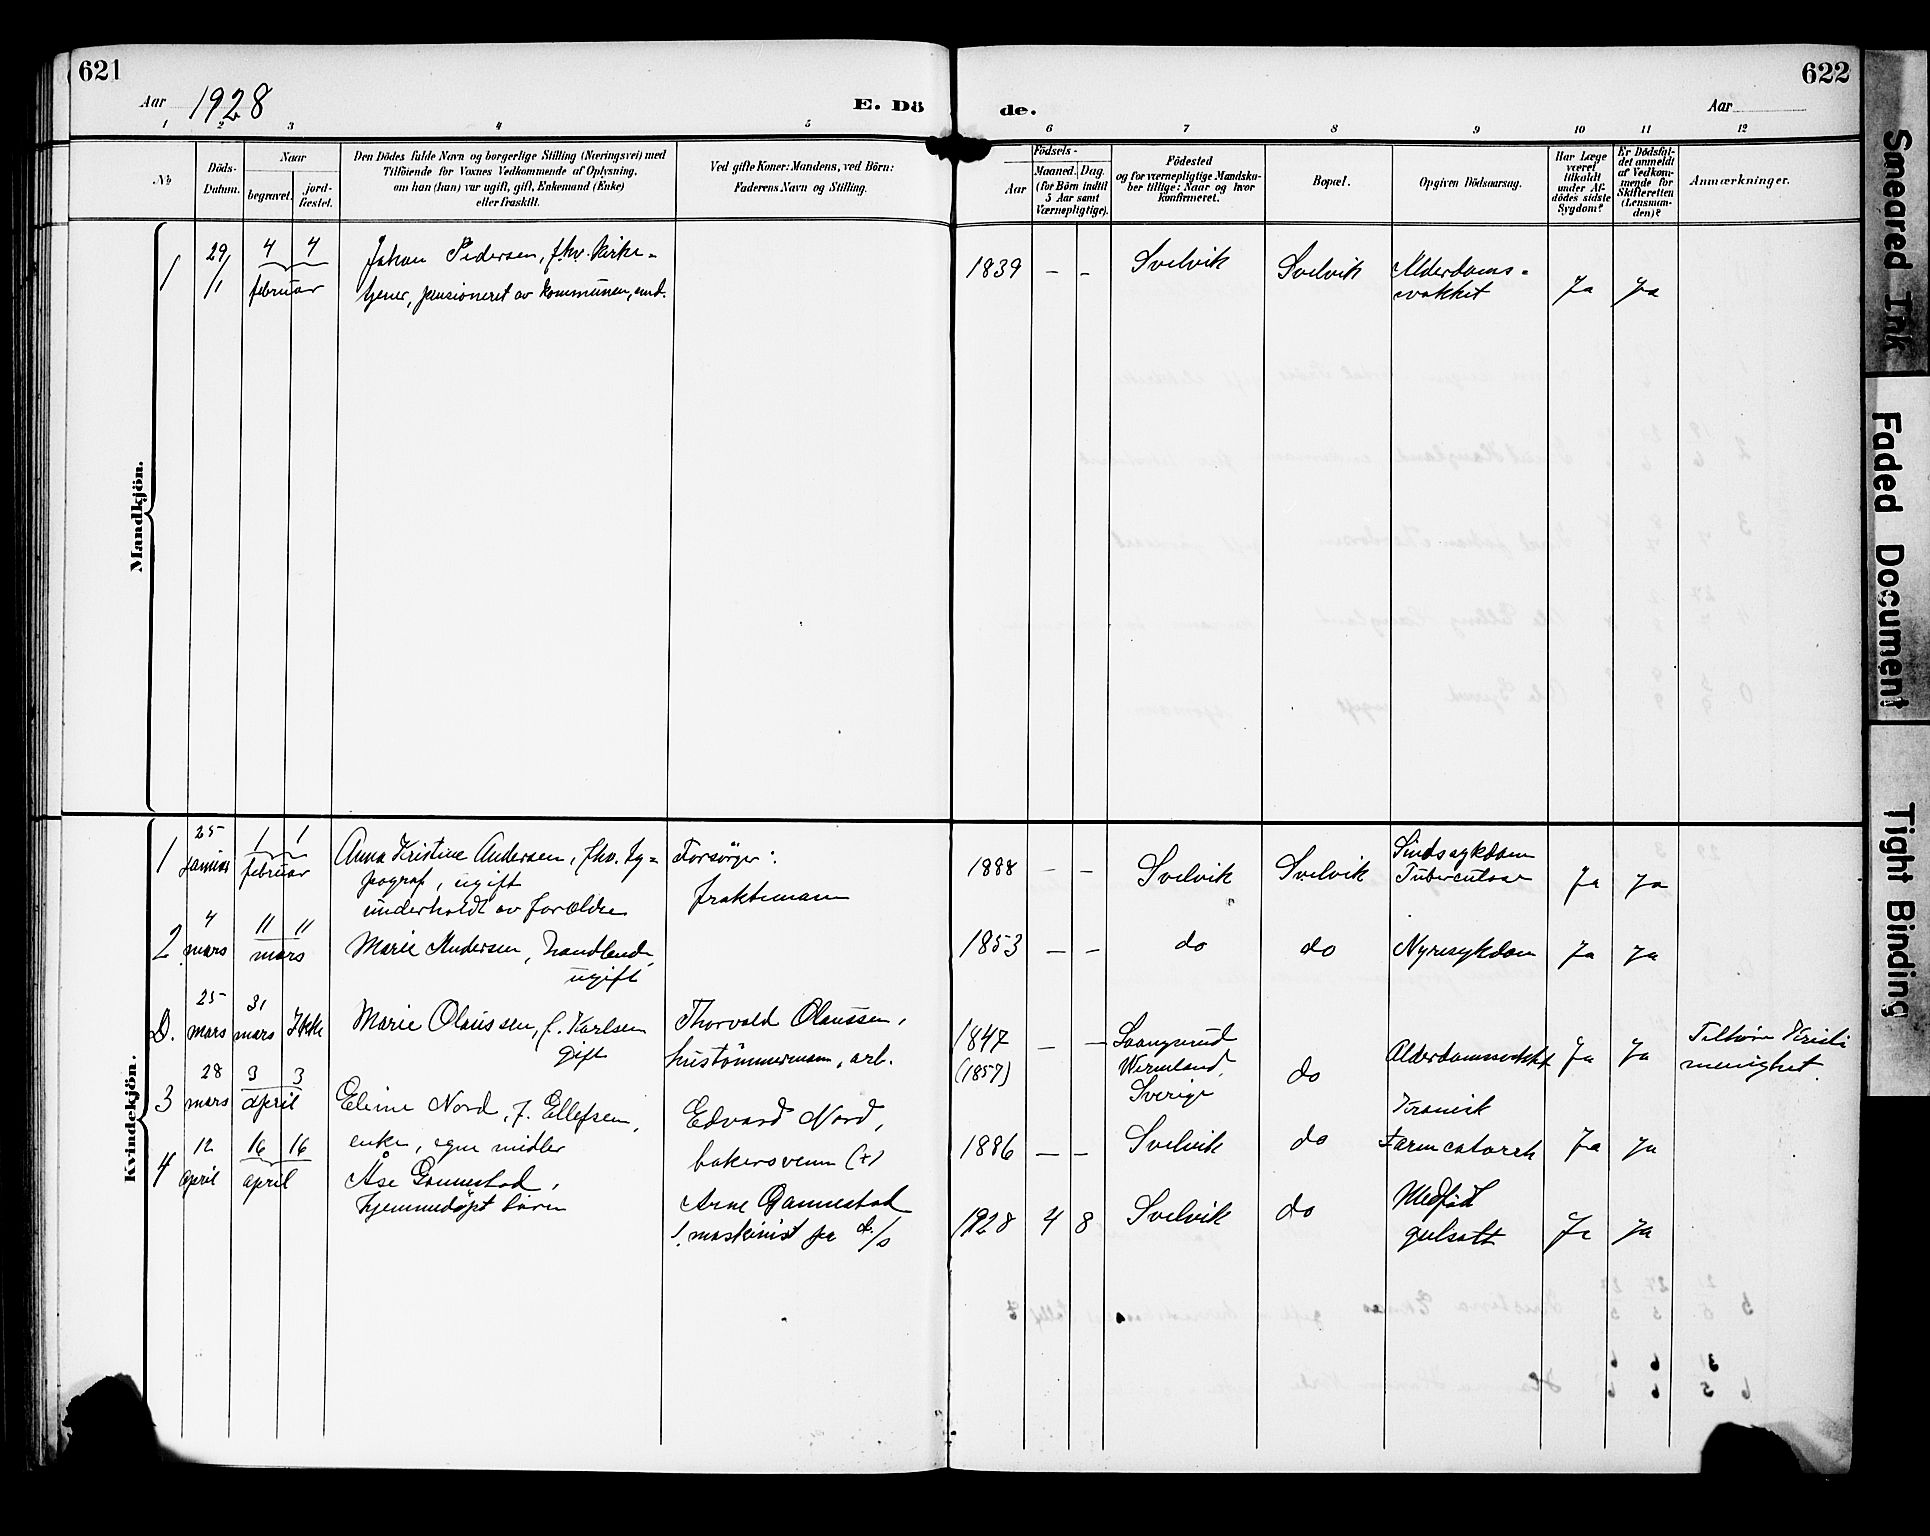 621
622
Aar 1928
E. Dö
de.
Aar
1 2 3 4 5 6 7 8 9 10 11 12
No
Döds-
Datum.
Naar
begravet.
jord-
fæstet.
Den Dödes fulde Navn og borgerlige Stilling (Næringsvei) med
Tilföiende for Voxnes Vedkommende af Oplysning,
om han (hun) var ugift, gift, Enkemand (Enke)
eller fraskilt.
Ved gifte Koner: Mandens, ved Börn:
Faderens Navn og Stilling.
Födsels-
Aar
Maaned.
Dag.
(for Börn indtil
5 Aar samt
Værnepligtige).
Födested
og for værnepligtige Mandska-
ber tillige: Naar og hvor
konfirmeret.
Bopæl.
Opgiven Dödsaarsag.
Har Læge
været
tilkaldt
under Af-
dödes sidste
Sygdom?
Er Dödsfal-
det anmeldt
af Vedkom-
mende for
Skifteretten
(Lensman-
den)?
Anmærkninger.
Mandkjön.
1 29/1 4 4 februar
Johan Pedersen, f.hv. kirke-
tjener, pensioneret av kommunen,
1839 – – Svelvik Svelvik Alderdoms-
svakhet Ja Ja
Kvindekjön.
1 25 januar 1 1 februar
Anna Kristine Andersen, fhv. ty=
pograf, ugift
underholdt av forældre
Forsörger:
fraktemann
1888 – – Svelvik Svelvik Sindssykdom
Tuberculose Ja Ja
2 4 mars 11 11 mars
Marie Andersen, handlende,
ugift
1853 – – do do Nyresykdom Ja Ja
D. 25 mars 31 mars Ikke
Marie Olaussen, f. Karlsen
gift
Thorvald Olaussen,
hustömmermann, arb.
1847
(1857) – –
Wermland,
Sverige
do Alderdomssvakhet Ja Ja
menighet.
3 28 mars 3 3 april
Eline Nord, f. Ellefsen,
enke, egne midler
Edvard Nord,
bakersvenn (+)
1886 – – Svelvik do Kronisk
Tarmcatarrh Ja Ja
4 12 april 16 16 april
Åse Gannestad,
hjemmedöpt barn
Arne Gannestad
1. maskinist på d/s
1928 4 8 Svelvik do Medfødt
gulsott Ja Ja
Smeared Ink
Faded Document
Tight Binding